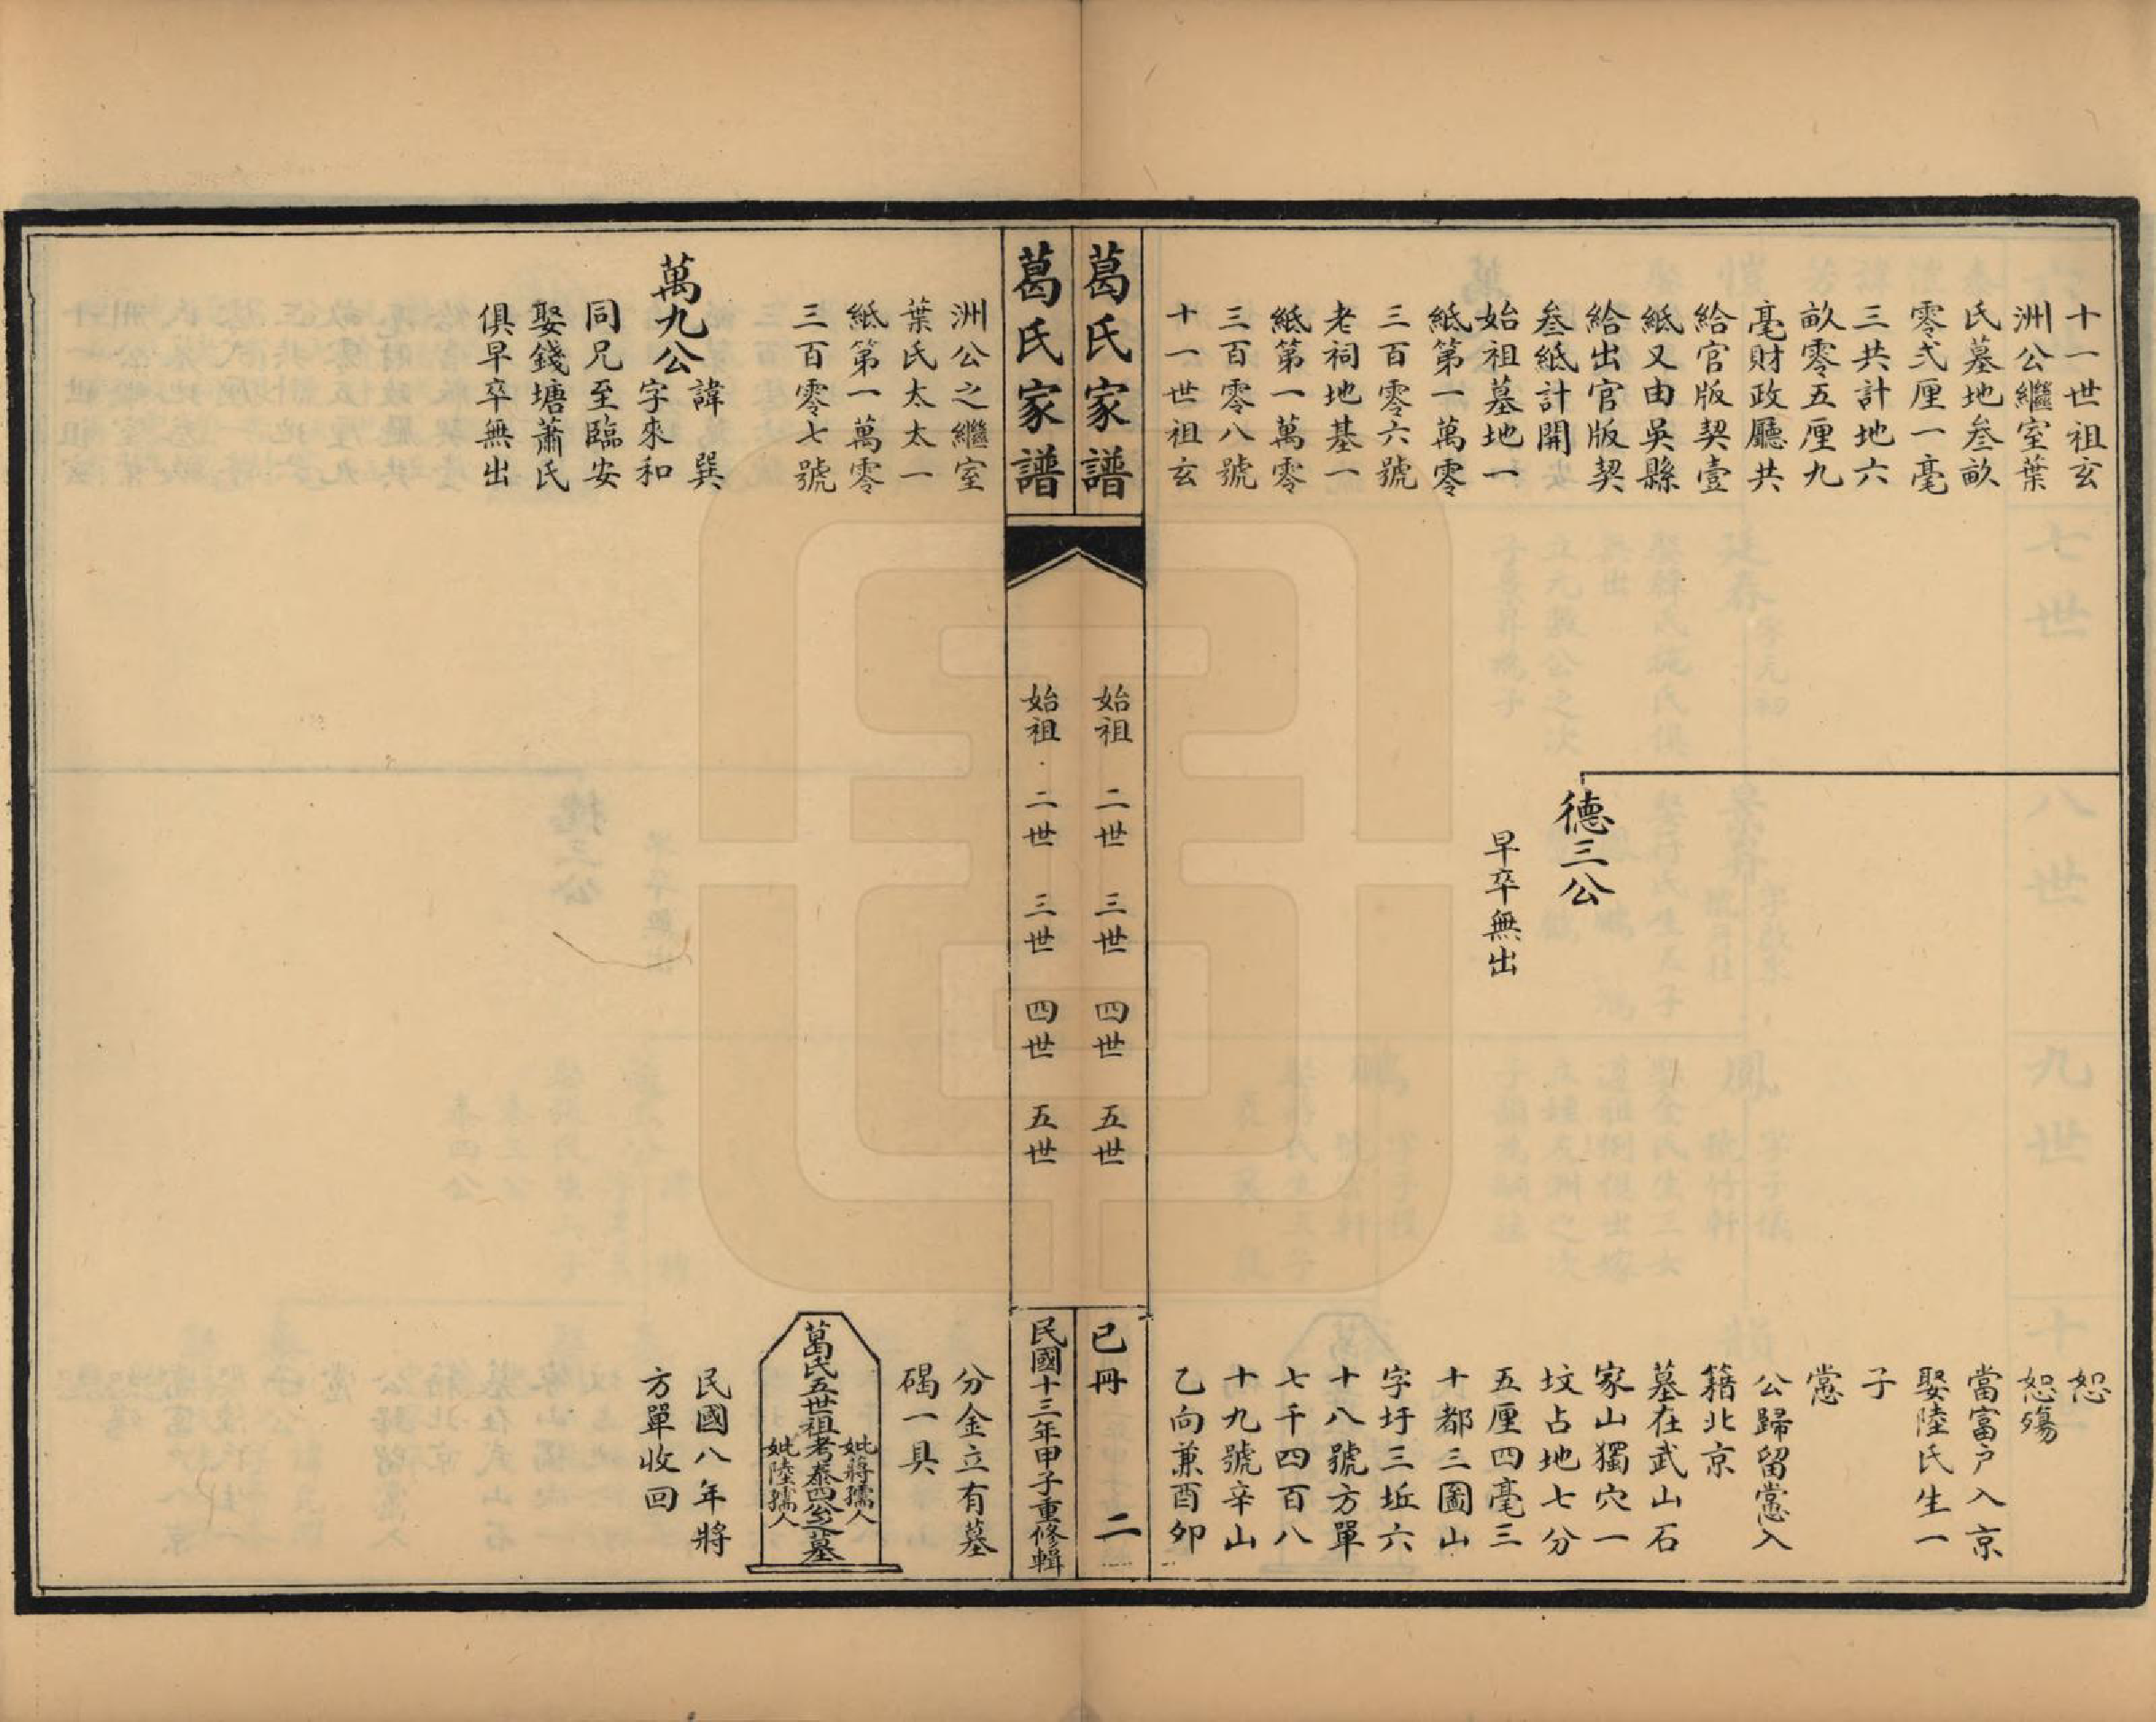 十一世祖玄
洲公繼室葉
氏墓地叁畝
零弍厘一毫
三共計地六
畝零五厘九
毫財政廳共
給官版契壹
紙又由吳縣
給出官版契
叁紙計開
始祖墓地一
紙第一萬零
三百零六號
老祠地基一
紙第一萬零
三百零八號
十一世祖玄
德三公
早卒無出
恕
恕殤
當富户入京
娶陸氏生一
子
憲
公歸留憲入
籍北京
墓在武山石
家山獨穴一
坟占地七分
五厘四毫三
十都三圖山
字圩三坵六
十八號方單
七千四百八
十九號辛山
乙向兼酉卯
葛氏家譜
始祖 二世 三世 四世 五世
已冊 二
葛氏家譜
始祖 二世 三世 四世 五世
民國十三年甲子重修輯
洲公之繼室
葉氏太太一
紙第一萬零
三百零七號
萬九公
諱巽
字來和
同兄至臨安
娶錢塘蕭氏
俱早卒無出
分金立有墓
碣一具
妣蔣孺人
葛氏五世祖考泰四公之墓
妣陸孺人
民國八年將
方單收回